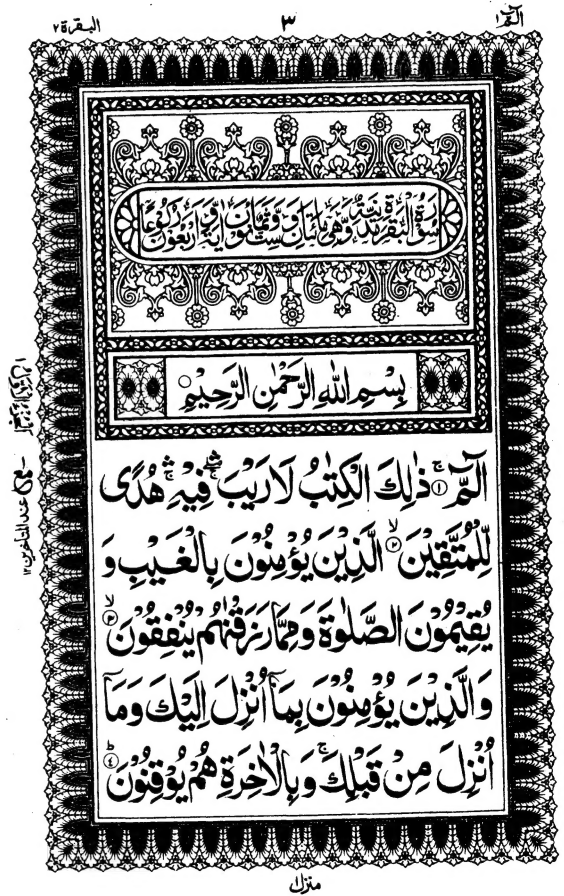 الٓمّٓ ١
٣
البقرة ٢
سُوْرَةُ الْبَقَرَةِ مَدَنِيَّةٌ وَّهِيَ مِائَتَانِ وَسِتٌّ وَّثَمَانُوْنَ اٰيَةً وَّاَرْبَعُوْنَ رُكُوْعًا
بِسْمِ اللّٰهِ الرَّحْمٰنِ الرَّحِيْمِ
الٓمّٓ ۚ﴿۱﴾ ذٰلِكَ الْكِتٰبُ لَا رَيْبَ ۛۚ فِيْهِ ۛۚ هُدًى
لِّلْمُتَّقِيْنَ ۙ﴿۲﴾ الَّذِيْنَ يُؤْمِنُوْنَ بِالْغَيْبِ وَ
يُقِيْمُوْنَ الصَّلٰوةَ وَمِمَّا رَزَقْنٰهُمْ يُنْفِقُوْنَ ۙ﴿۳﴾
وَالَّذِيْنَ يُؤْمِنُوْنَ بِمَاۤ اُنْزِلَ اِلَيْكَ وَمَاۤ
اُنْزِلَ مِنْ قَبْلِكَ ۚ وَبِالْاٰخِرَةِ هُمْ يُوْقِنُوْنَ ؕ﴿۴﴾
عند المتاخرين ١٢
منزل